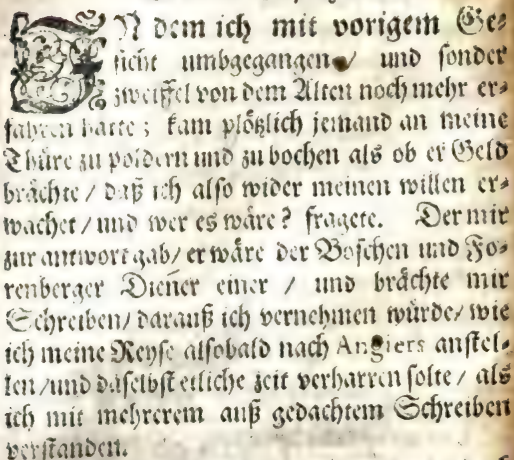 IN dem ich mit vorigem Ge⸗
sicht umbgegangen / und sonder
zweiffel von dem Alten noch mehr er⸗
fahren hatte; kam plötzlich jemand an meine
Thüre zu poldern und zu bochen als ob er Geld
brächte / daß ich also wider meinen willen er⸗
wachet / und wer es wäre? fragete. Der mir
zur antwort gab / er wäre der Boschen und Fo⸗
renberger Diener einer / und brächte mir
Schreiben / darauß ich vernehmen würde / wie
ich meine Reyse alsobald nach Angiers anstel⸗
len / und daselbst etliche zeit verharren solte / als
ich mit mehrerem auß gedachtem Schreiben
verstanden.